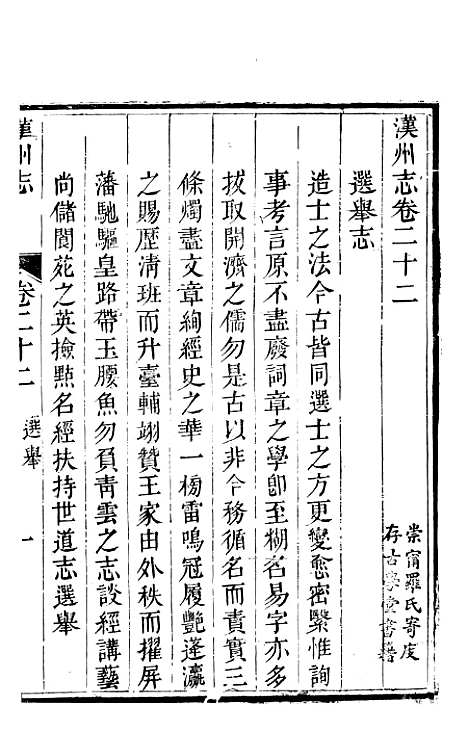 漢州志卷二十二
崇甯羅氏寄廋
存古學堂書籍
選舉志
造士之法今古皆同選士之方更變愈密緊惟詢
事考言原不盡廢詞章之學卽至糊名易字亦多
拔取開濟之儒勿是古以非今務循名而責實三
條燭盡文章絢經史之華一榜雷鳴冠履艷蓬瀛
之賜歷清班而升臺輔翊贊王家由外秩而擢屏
藩馳驅皇路帶玉腰魚勿負靑雲之志談經講藝
尚儲閬苑之英撿㸃名經扶持世道志選舉
漢州志
卷二十二
選舉
一